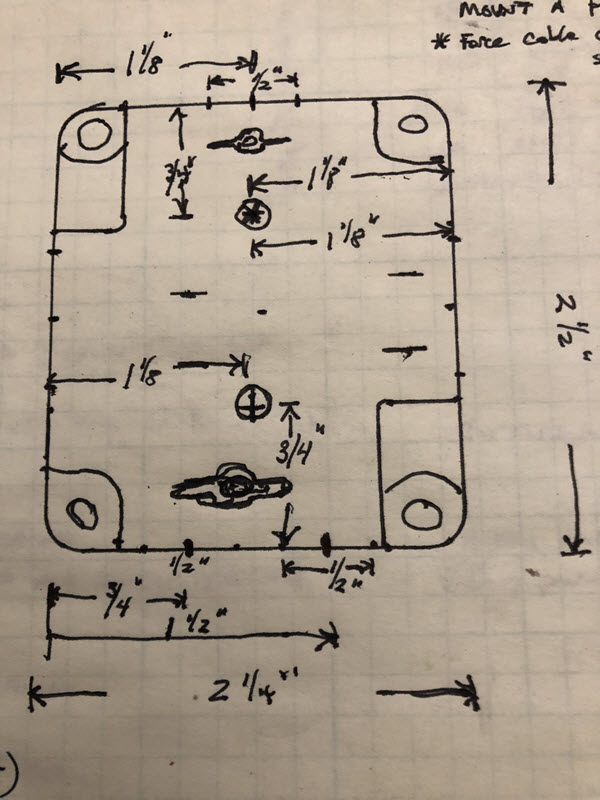 MOUNT A
* Force cable
1 1/8"
1/2"
3/4"
1 1/8"
1 1/8"
2 1/2"
1 1/8
3/4"
1/2"
1/2"
3/4"
1 1/2"
2 1/4"